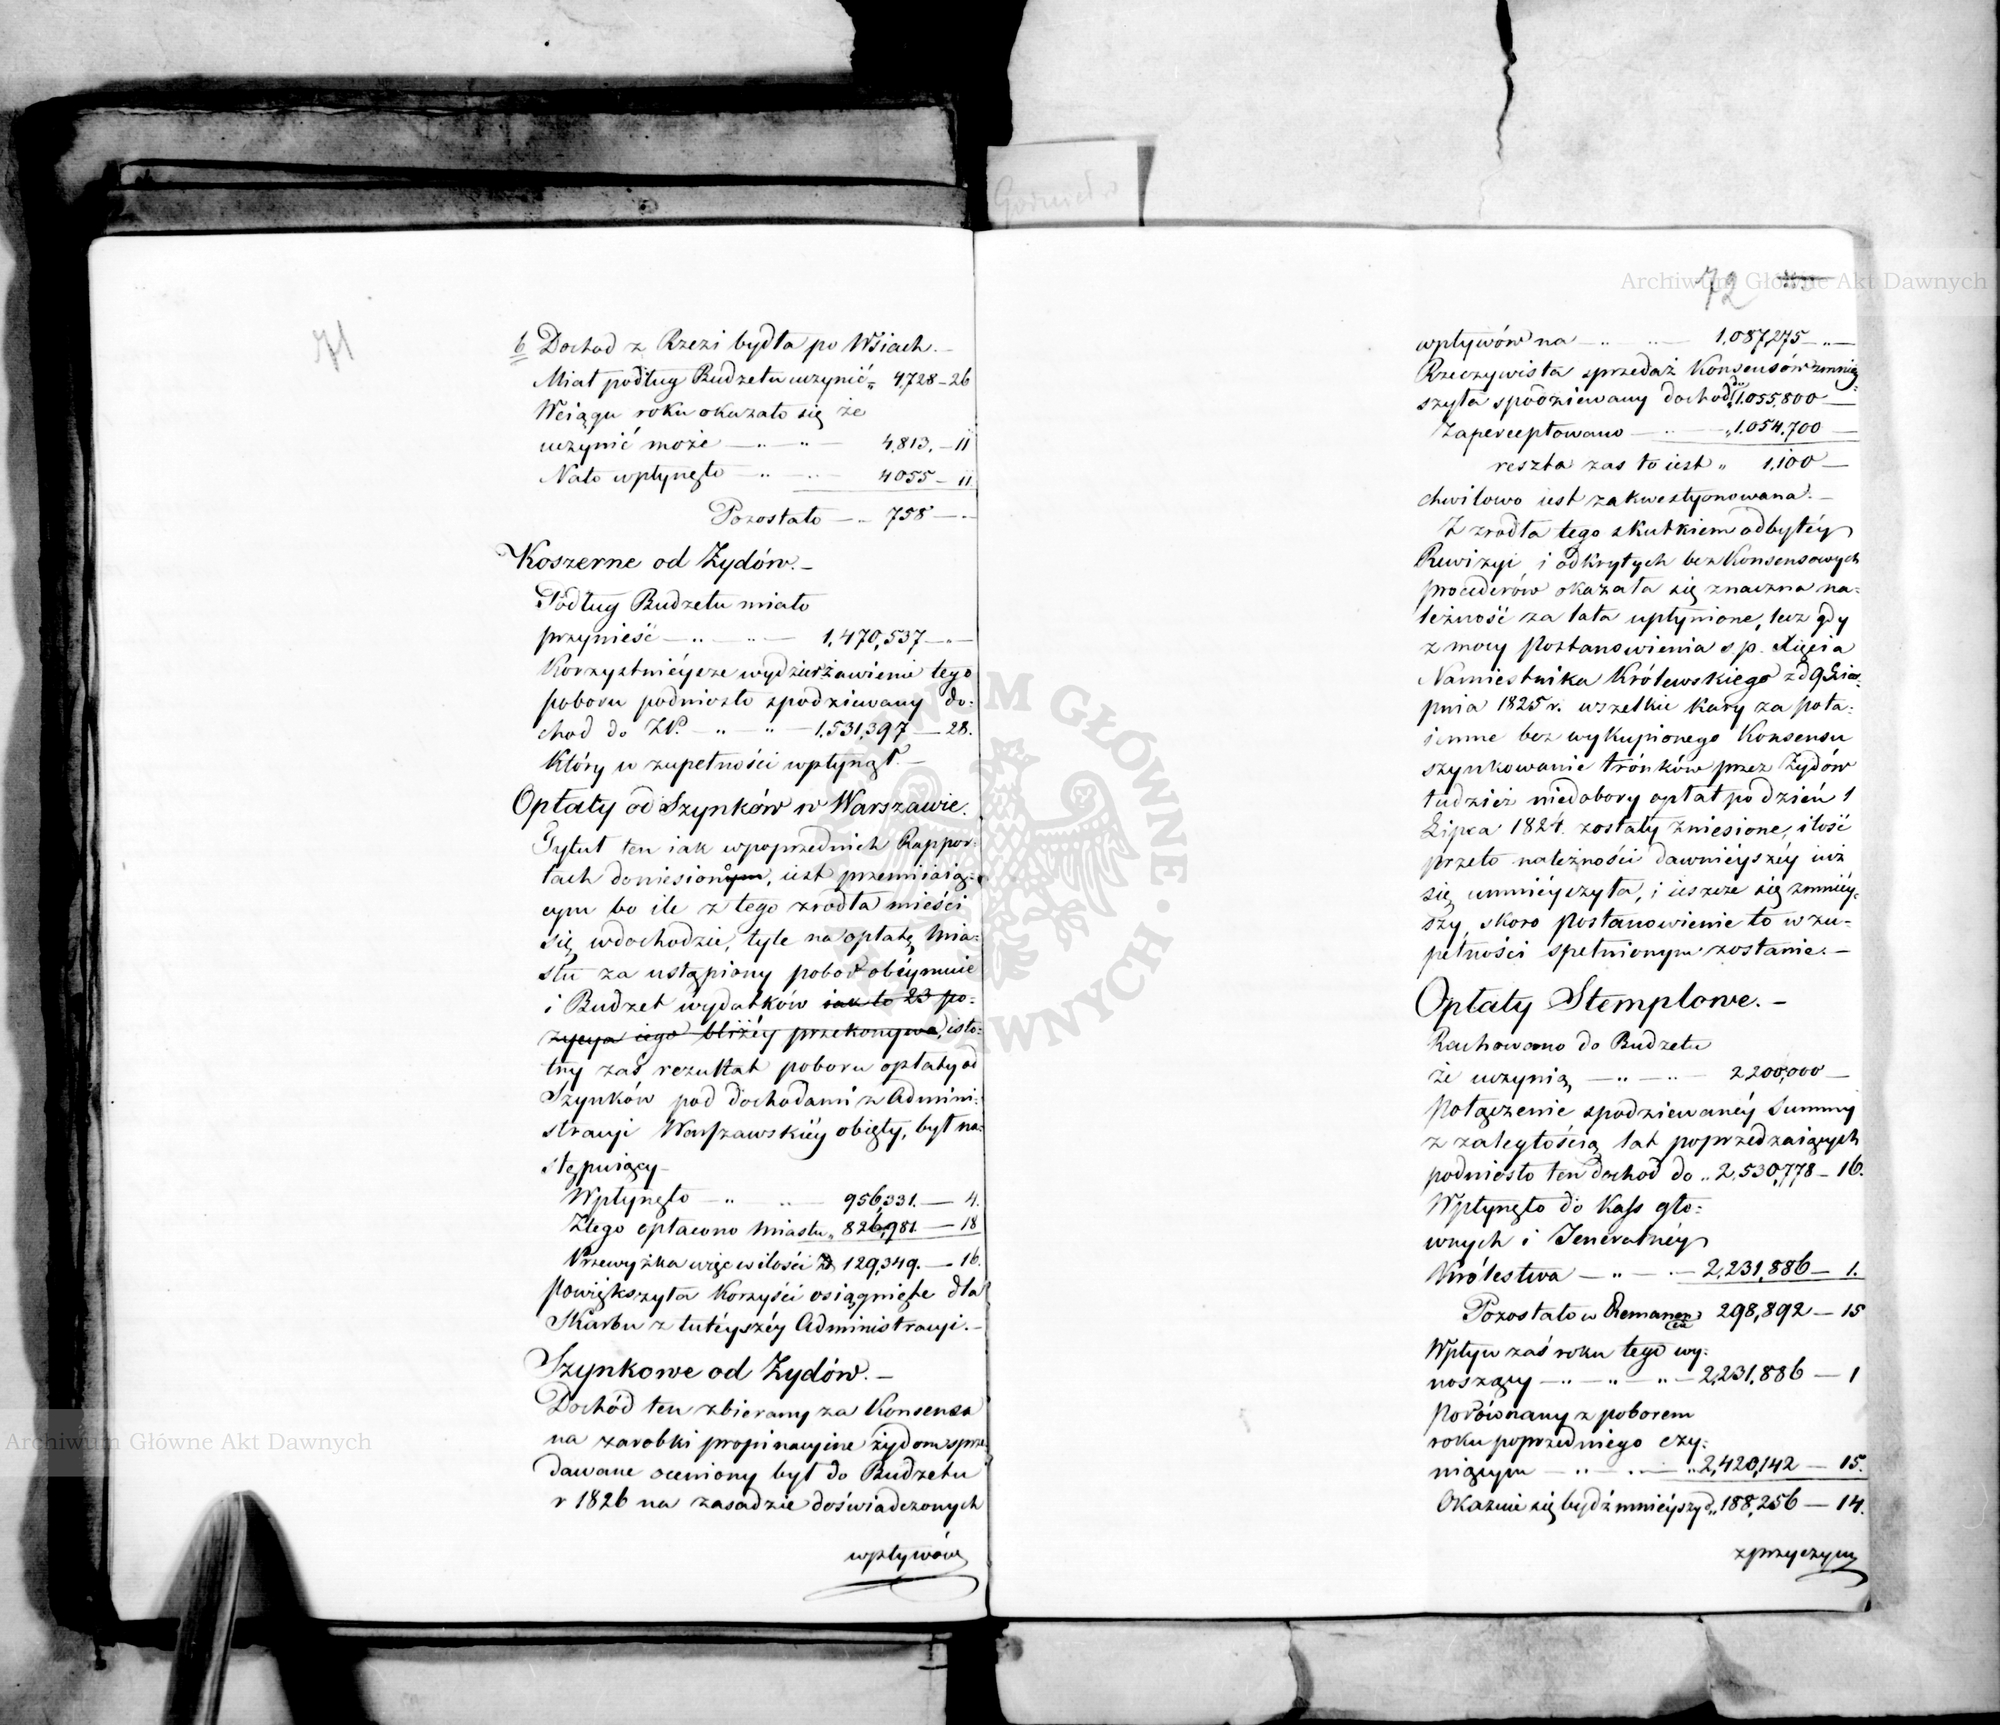 71
b Dochod z Rzezi bydła po Wsiach.–
Miał podług Budżetu uczynić „ 4,728–26
Wciągu roku okazało się że
uczynić może — „ — „ — 4,813.–11
Nato wpłynęło — „ — „ — 4055–11.
Pozostało — „ 758 — „
Koszerne od Żydów.–
Podług Budżetu miało
przynieść — „ — „ — 1,470,537 — „ —
Korzystnieysze wydzierżawienie tego
poboru podniosło spodziewany do-
chod do Zł. — „ — „ — 1,531,397 — 28.
Który w zupełności wpłynął.–
Opłaty od Szynków w Warszawie.
Tytuł ten iak wpoprzednich Rappor-
tach doniesiono, iest przemiaią-
cym bo ile z tego zrodła mieści
się wdochodzie, tyle na opłatę Mia-
stu za ustąpiony pobor obeymuie
i Budżet wydatków iak to 23 po-
zycya iego bliżéy przekonywa, isto-
tny zaś rezultat poboru opłaty od
Szynków pod dochodami z Admini-
stracyi Warszawskiéy obięty, był na-
stępuiący–
Wpłynęło — „ — „ — 956,331.— 4.
Ztego opłacono Miastu „ 826,981 — 18
Przewyżka więc w ilości Zł 129,349.— 16.
Powiększyła Korzyści osiągnięte dla
Skarbu z tutéyszéy Administracyi.–
Szynkowe od Żydów.–
Dochód ten zbierany za Konsensa
na zarobki propinacyine żydom sprze-
dawane oceniony był do Budżetu
r 1826 na zasadzie doświadczonych
wpływów
72
wpływów na — „ — „ — 1,087,275 — „ —
Rzeczywista sprzedaż Konsensów zmniey-
szyła spodziewany dochod do „ 1,055,800 —
Zapercepłowano — „ — „ 1,054,700 —
reszta zas to iest „ 1,100 —
chwilowo iest zakwestyonowana.–
Z zrodła tego skutkiem odbytéy
Rewizyi i odkrytych bez Konsensowych
procederów okazała się znaczna na-
leżność za lata upłynione, lecz gdy
z mocy Postanowienia ś.p. Xięcia
Namiestnika Królewskiego z d 9 Sier-
pnia 1825 r. wszelkie kary za pota-
iemne bez wykupionego Konsensu
szynkowanie trónków przez Żydów
tudzież niedobory opłat po dzień 1
Lipca 1824. zostały zniesione, ilość
przeto należności dawniéyszéy iuż
się umniéyszyła, i ieszcze się zmniéy-
szy, skoro Postanowienie to w zu-
pełności spełnionym zostanie.–
Opłaty Stemplowe.–
Rachowano do Budżetu
że uczynią — „ — „ — 2200,000 —
Połączenie spodziewanéy Summy
z zaległością lat poprzedzaiących
podniosło ten dochod do „ 2,530,778– 16.
Wpłynęło do Kass głó-
wnych i Jeneralnéy
Królestwa — „ — „ — 2,231,886 — 1.
Pozostało w Remanencie 298,892 — 15
Wpływ zaś roku tego wy-
noszący — „ — „ — „ — 2,231,886 — 1
Porównany z poborem
roku poprzedniego czy-
niącym — „ — „ — „ 2,420,142 — 15.
Okazuie się bydź mnieyszy o „ 188,256 — 14.
zprzyczyny